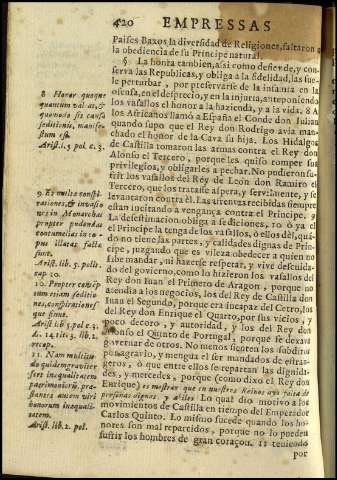 420 EMPRESSAS
Paises Baxos la diversidad de Religiones, faltaron a
la obediencia de su Principe natural.
§. La honra tambien, assi como defiende, y con-
serva las Republicas, y obliga a la fidelidad, las sue-
le perturbar, por preservarse de la infamia en la
ofensa, en el desprecio, y en la injuria, anteponiendo
los vasallos el honor a la hazienda, y a la vida. 8 A
los Africanos llamò a España el Conde don Julian
quando supo que el Rey don Rodrigo avia man-
chado el honor de la Cava su hija. Los Hidalgos
de Castilla tomaron las armas contra el Rey don
Alonso el Tercero, porque les quiso romper sus
privilegios, y obligarles a pechar. No pudieron su-
frir los vasallos del Rey de Leon don Ramiro el
Tercero, que los tratasse aspera, y servilmente, y se
levantaron contra èl. Las afrentas recibidas siempre
estan incitando a vengança contra el Principe. 9
La desestimacion obliga a sediciones, 10 ò ya el
el Principe la tenga de los vasallos, ò ellos dèl, quan-
do no tiene las partes, y calidades dignas de Prin-
cipe, juzgando que es vileza obedecer a quien no
sabe mandar, ni hazerse respetar, y vive descuida-
do del govierno, como lo hizieron los vasallos del
Rey don Iuan el Primero de Aragon, porque no
atendia a los negocios, los del Rey de Castilla don
Iuan el Segundo, porque era incapaz del Cetro, los
del Rey don Enrique el Quarto, por sus vicios, y
poco decoro, y autoridad, y los del Rey don
Alonso el Quinto de Portugal, porque se dexava
governar de otros. No menos sienten los subditos
por agravio, y mengua el ser mandados de estran-
geros, ò que entre ellos se repartan las dignida-
des, y mercedes, porque (como dixo el Rey don
Enrique) es mostrar que en nuestros Reinos aya falta de
personas dignas, y abiles. Lo qual dio motivo a los
movimientos de Castilla en tiempo del Emperador
Carlos Quinto. Lo mismo sucede quando los ho-
nores son mal repartidos, porque no lo pueden
sufrir los hombres de gran coraçon, 11 teniendo
por
8 Honor quoque
quantum valeat, &
quomodo sit causa
seditionis, manifes-
tum est.
Arist. l. 5 pol. c. 3.
9. Et multæ consti-
rationes, & invasio-
nes in Monarchas
propter pudendas
contumelias in cor-
pus illatas factæ
sunt.
Arist. lib. 5. polit.
cap 10.
10. Propter contēp-
tum etiam seditio-
nes, conspirationes-
que fiunt.
Arist. lib 5. pol c 3.
11. Nam multitu-
do quidem graviter
fert inæqualitatem
patrimoniorū, præ-
stantes autem viri
honorum inæquali-
tatem.
Arist. lib. 2. pol.